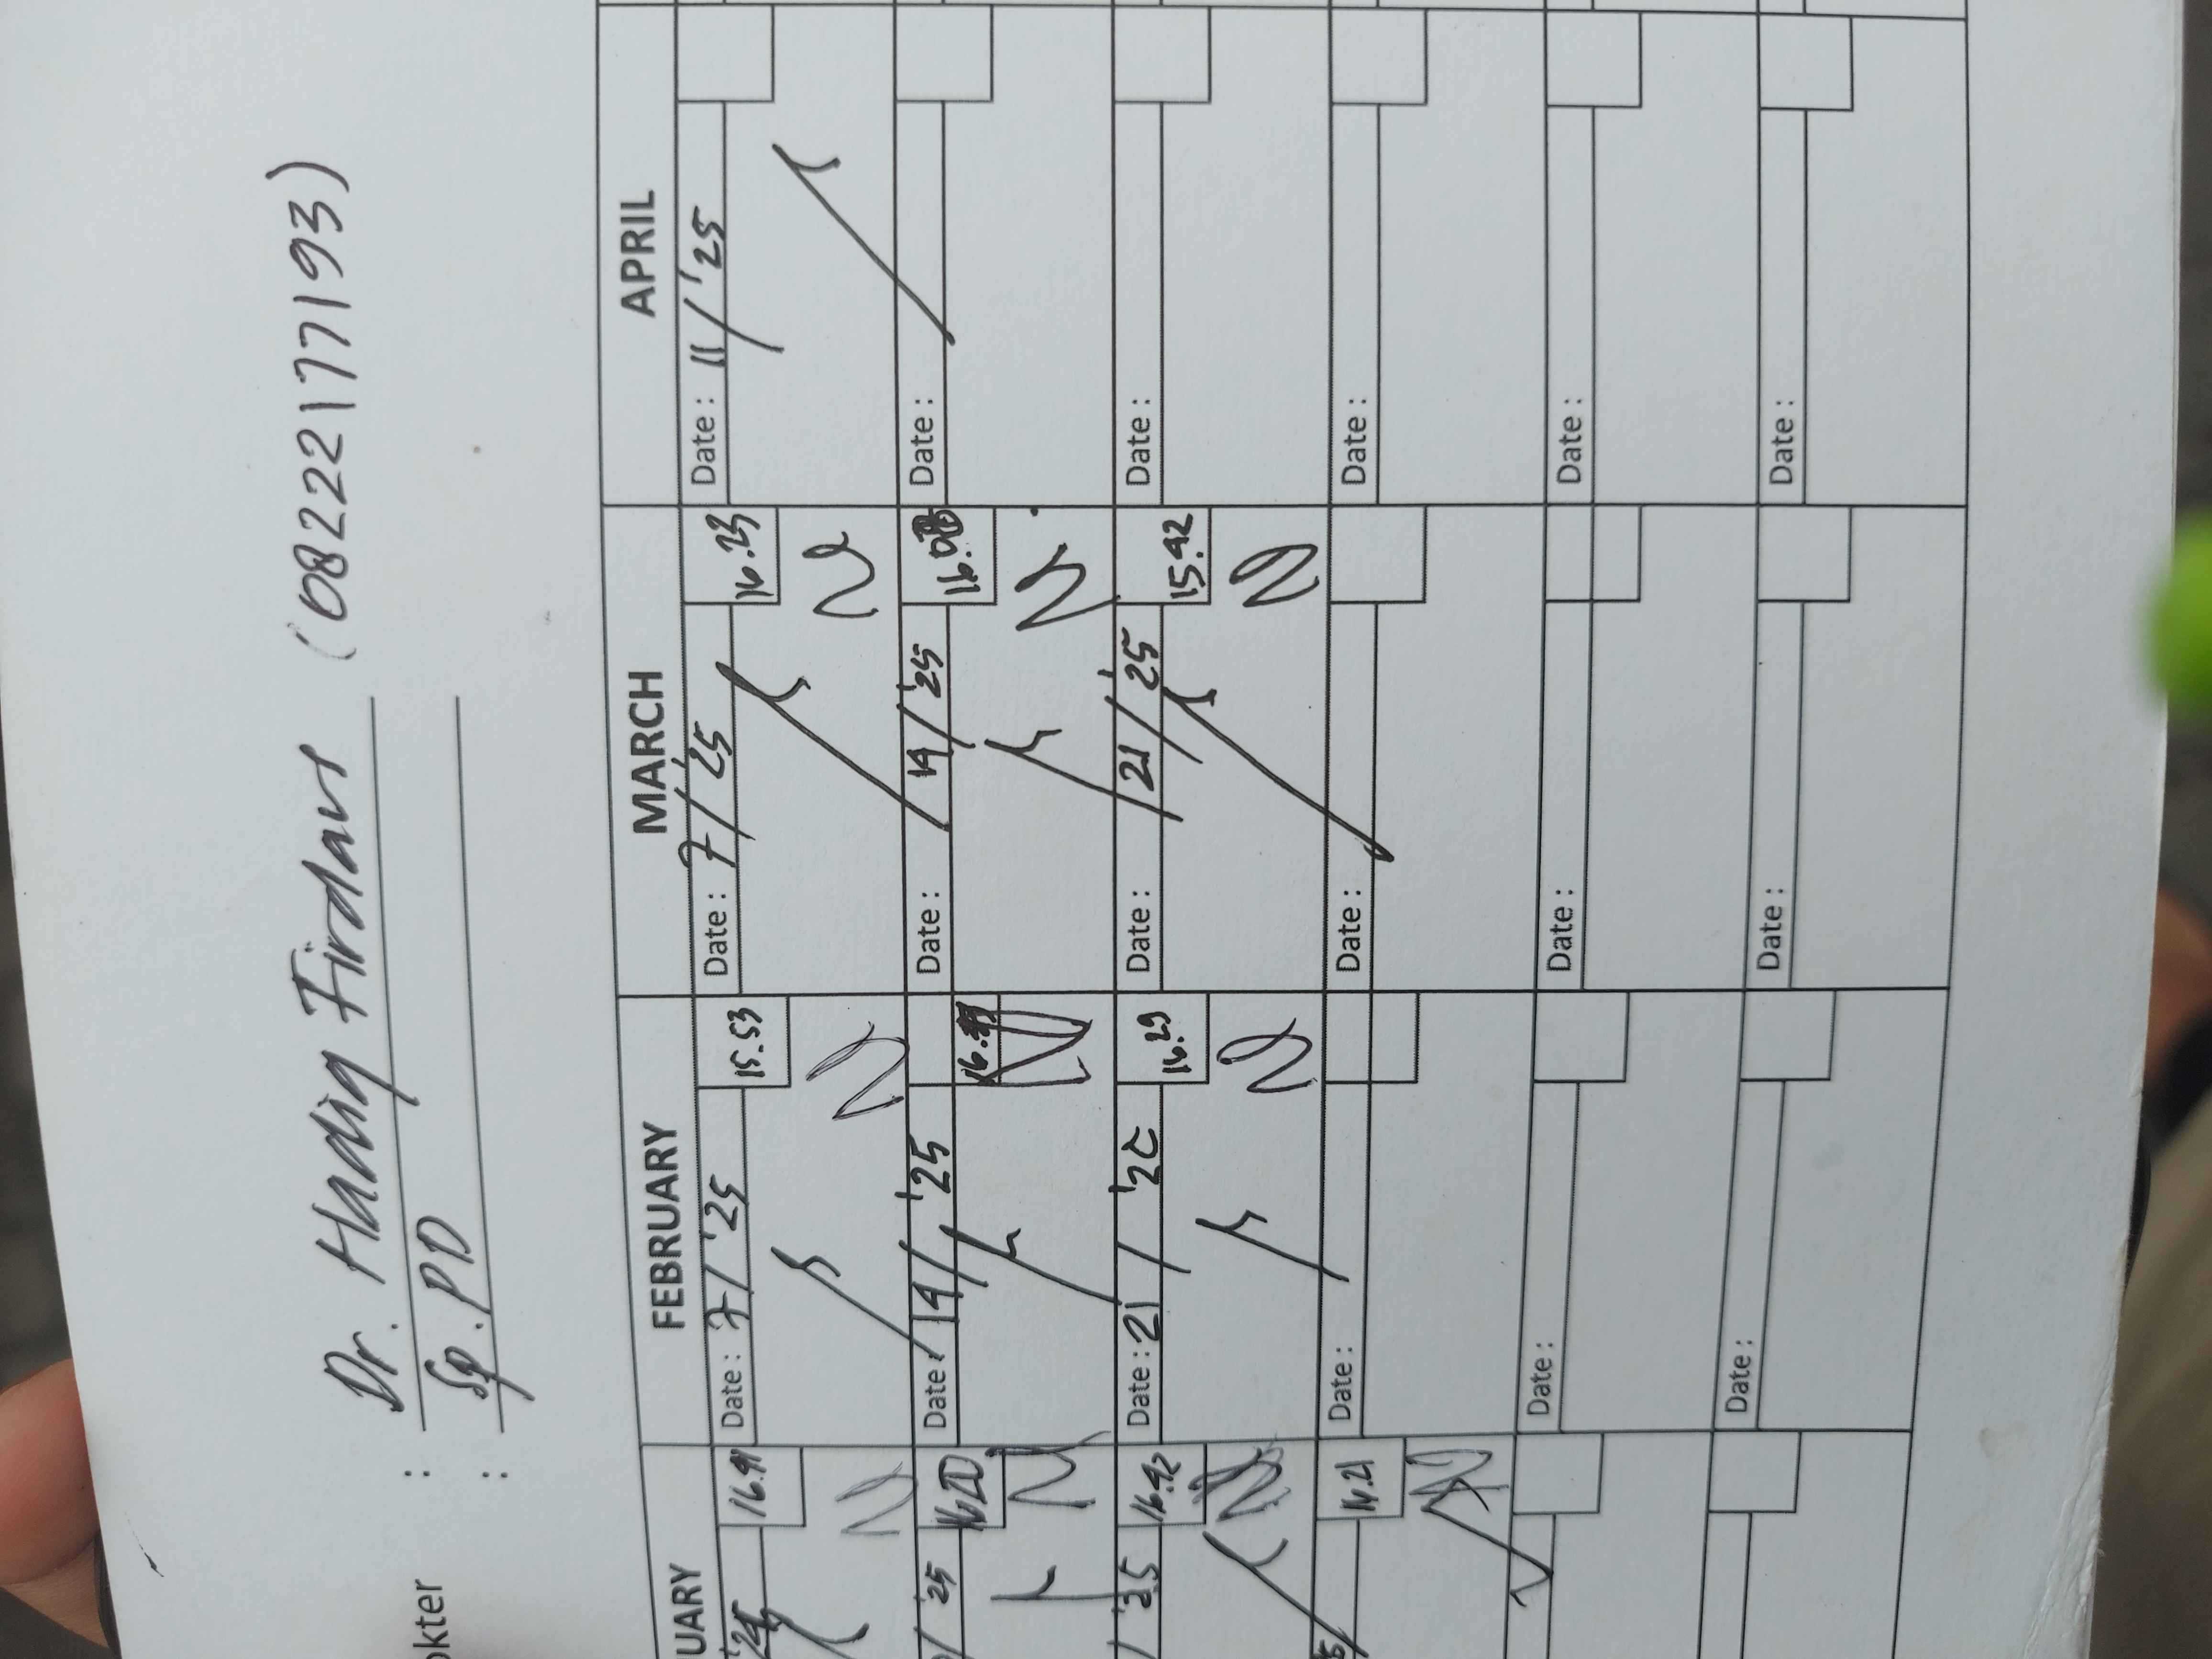 okter : Dr. Hadiq Firdaus (082221777193)
: Sp.PD
UARY FEBRUARY MARCH APRIL
Date : 7/'25 15.53 Date : 7/'25 16.23 Date : 11/'25
'25 Date : 14/'25 Date : 14/'25 Date :
'25 16.42 Date : 21/ 16.29 Date : 21/'25 15.42 Date :
Date : Date : Date :
Date : Date : Date :
Date : Date : Date :